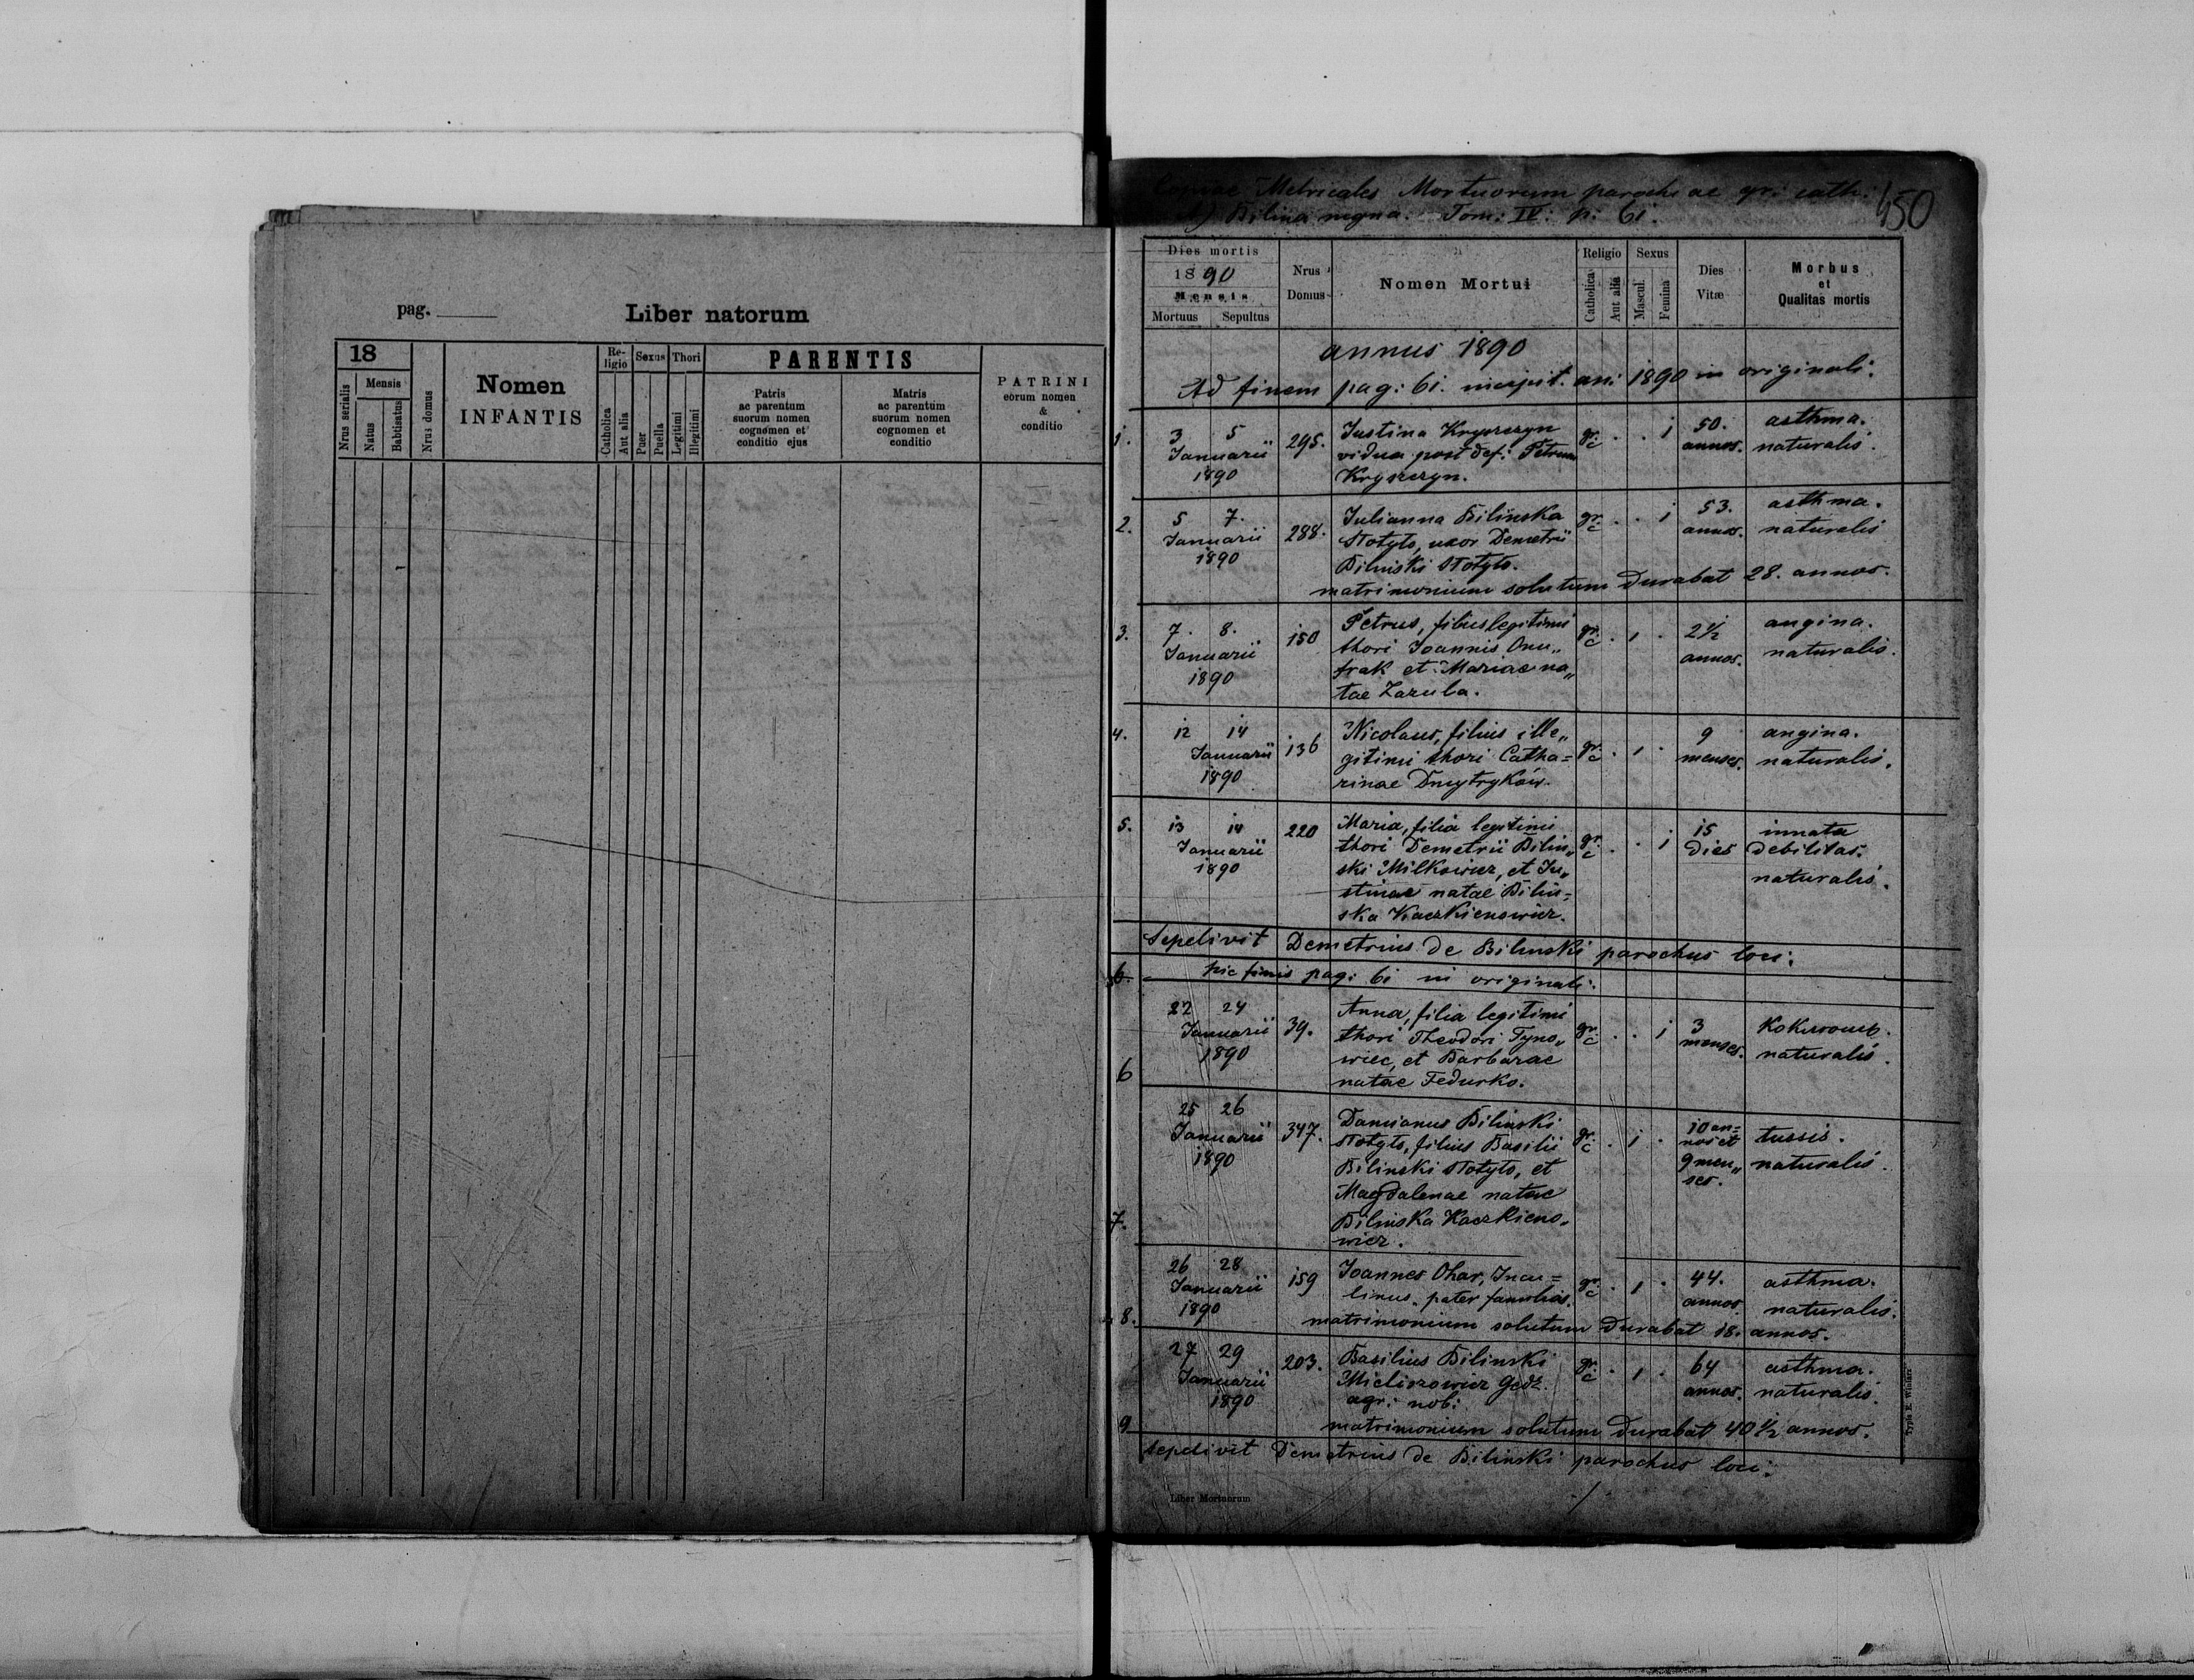 pag.
Liber natorum
18
Mensis
Nrus serialis
Natus
Babtissatus
Nrus domus
Nomen
INFANTIS
Re-
ligio
Sexus
Thori
Catholica
Aut alia
Puer
Puella
Legitimi
Illegitimi
PARENTIS
Patris
ac parentum
suorum nomen
cognomen et
conditio ejus
Matris
ac parentum
suorum nomen
cognomen et
conditio
PATRINI
eorum nomen
&
conditio
Copiae Metricales Mortuorum parochiae gr: cath:
Bilina magna. Tom: IV: p: 61.
450
Dies mortis
1890
Mensis
Mortuus Sepultus
Nrus
Domus
Nomen Mortui
Religio
Catholica
Aut alia
Sexus
Mascul.
Femina
Dies
Vitæ
Morbus
et
Qualitas mortis
annus 1890
Ad finem pag: 61. incipit. ani 1890 in originali.
1. 3 5
Januarii
1890
295.
Justina Kryszczyn
vidua post def: Petrum
Kryszczyn.
gr.
c
. . 1
50.
annos.
asthma.
naturalis.
2. 5 7.
Januarii
1890
288.
Julianna Bilinska
Stotyto, uxor Demetrii
Bilinski Stotyto.
gr.
c
. . 1
53.
annos.
asthma.
naturalis
matrimonium solutum durabat 28. annos.
3. 7. 8.
Januarii
1890
150
Petrus, filius legitimi
thori Joannis Onu„
frak et Mariae na„
tae Zazula.
gr.
c
. 1 .
2 1/2
annos.
angina.
naturalis.
4. 12 14
Januarii
1890
136
Nicolaus, filius ille„
gitimi thori Catha=
rinae Dmytryków.
gr.
c
. 1 .
9
menses.
angina.
naturalis.
5. 13 14
Januarii
1890
220
Maria, filia legitimi
thori Demetrii Bilin„
ski Milkowicz, et Ju„
stinae natae Bilin=
ska Kaczkienowicz.
gr.
c
. . 1
15
dies
innata
debilitas.
naturalis.
Sepelivit Demetrius de Bilinski parochus loci.
6 hic finis pag: 61 in originali.
6
22 24
Januarii
1890
39.
Anna, filia legitimi
thori Theodori Tyno„
wiec, et Barbarae
natae Fedurko.
gr.
c
. . 1
3
menses.
naturalis.
7.
25 26
Januarii
1890
347.
Damianus Bilinski
Stotyto, filius Basilii
Bilinski Stotyto, et
Magdalenae natae
Bilinska Kaczkieno„
wicz.
gr.
c
. 1 .
10 an=
nos et
9 men„
ses.
tussis.
naturalis.
8.
26 28
Januarii
1890
159
Joannes Ohar, Incu=
linus. pater familias.
gr.
c
. 1 .
44.
annos.
asthma.
naturalis.
matrimonium solutum durabat 18. annos.
9
27 29
Januarii
1890
203.
Basilius Bilinski
agr: nob:
gr.
c
. 1 .
64
annos.
asthma.
naturalis.
matrimonium solutum durabat 40 1/2 annos.
Sepelivit Demetrius de Bilinski parochus loci.
Liber Mortuorum
Typis E. Winiarz